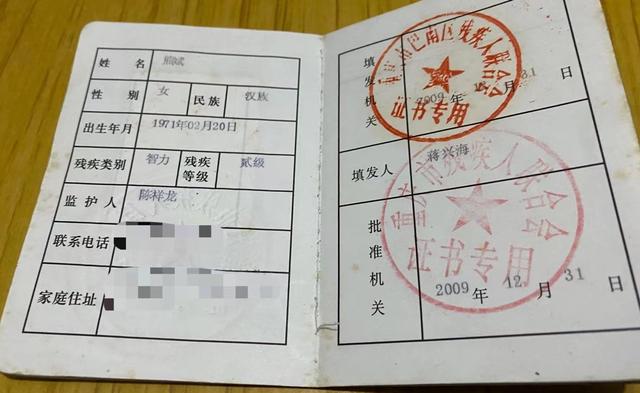 姓 名 熊斌
性 别 女 民族 汉族
出生年月 1971年02月20日
残疾类别 智力 残疾等级 贰级
监 护 人 陈祥龙
联系电话
家庭住址
填发机关
重庆市巴南区残疾人联合会
证书专用
2009 年 月 31 日
填发人 蒋兴海
批准机关
重庆市残疾人联合会
证书专用
2009 年 12 月 31 日